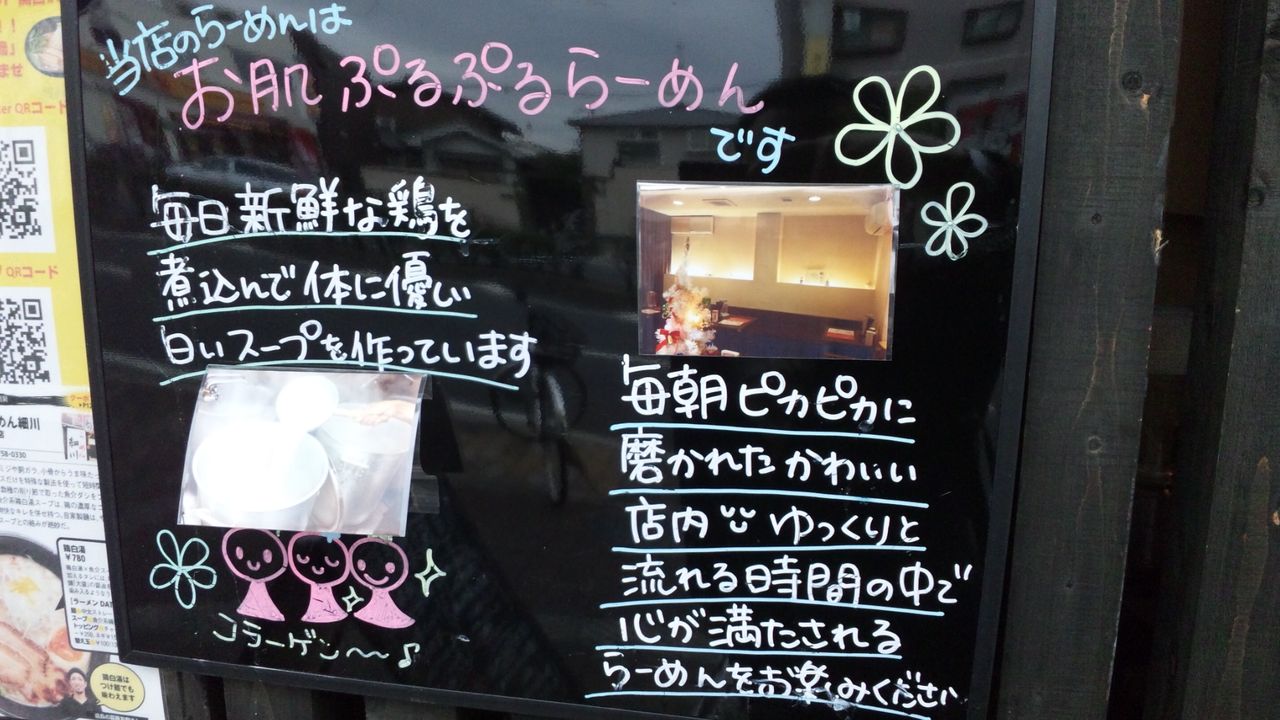 当店のらーめんは
お肌ぷるぷるらーめん
です
毎日新鮮な鶏を
煮込んで体に優しい
白いスープを作っています
コラーゲン〜〜♪
毎朝ピカピカに
磨かれたかわいい
店内 ゆっくりと
流れる時間の中で
心が満たされる
らーめんをお楽みください
QRコード
QRコード
めん細川
58-0330
鶏白湯
￥780
鶏白湯は
つけ麺でも
味わえます